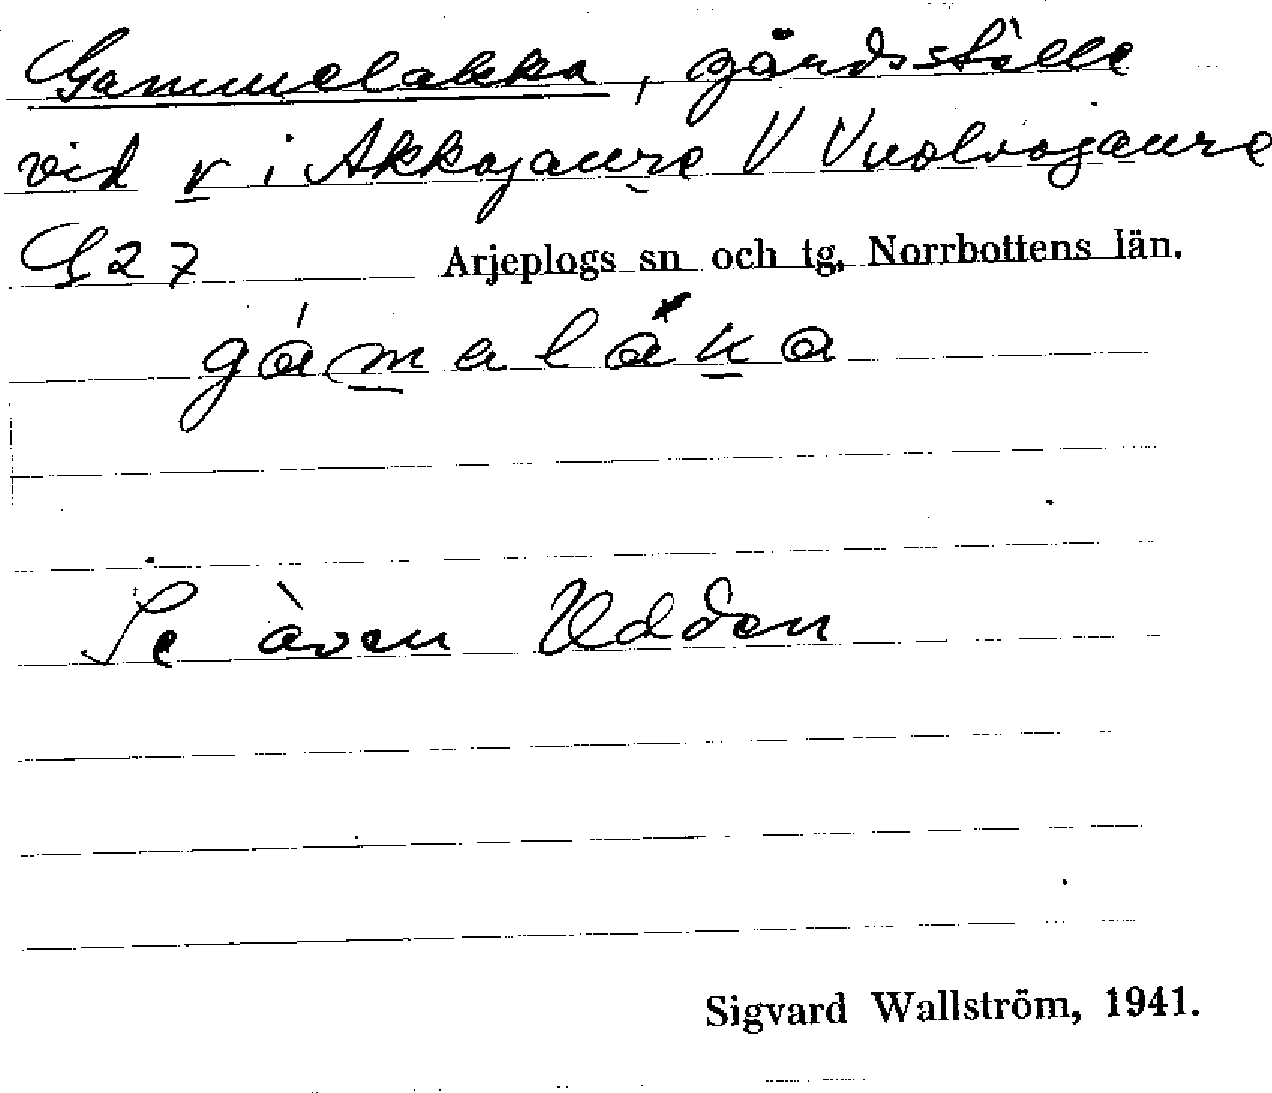 Gammelakka, gårdsställe
vid r i Akkajaure V Vuolvojaure
G27 Arjeplogs sn och tg, Norrbottens län.
gámalàka
Se även Udden
Sigvard Wallström, 1941.